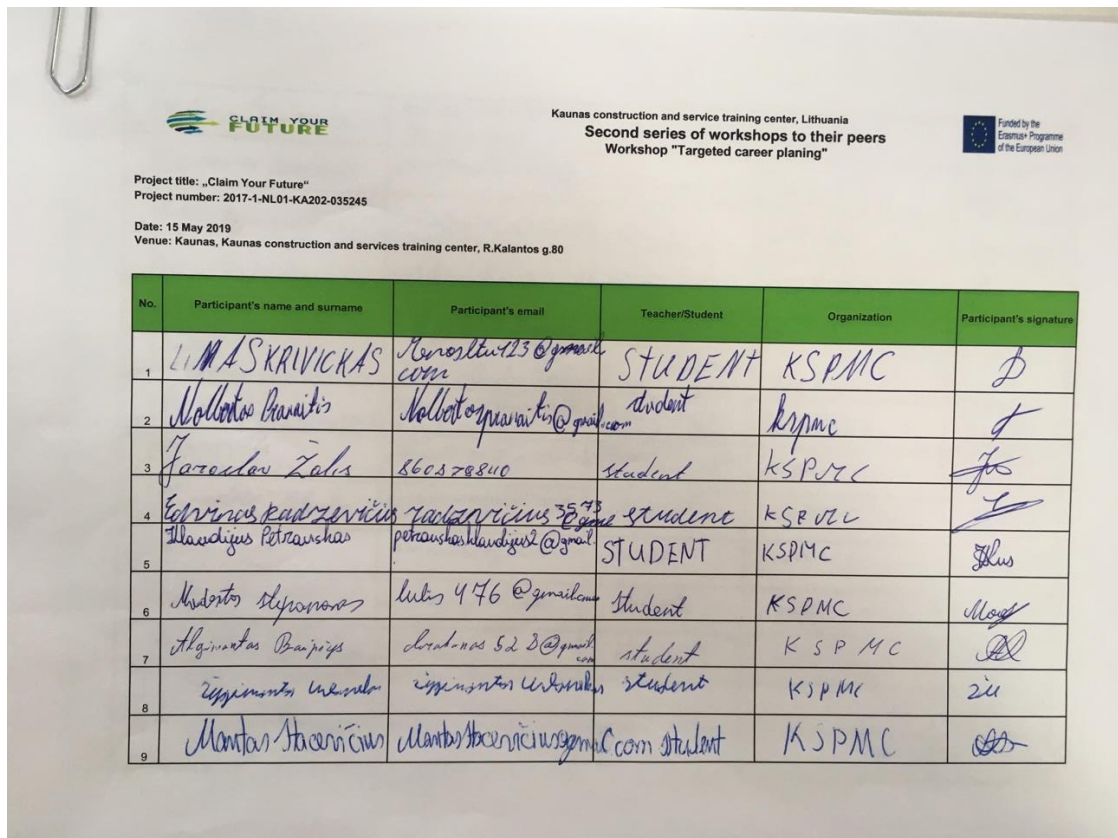 CLAIM YOUR
FUTURE
Kaunas construction and service training center, Lithuania
Second series of workshops to their peers
Workshop "Targeted career planing"
Funded by the
Erasmus+ Programme
of the European Union
Project title: „Claim Your Future"
Project number: 2017-1-NL01-KA202-035245
Date: 15 May 2019
Venue: Kaunas, Kaunas construction and services training center, R.Kalantos g.80
No. Participant's name and surname Participant's email Teacher/Student Organization Participant's signature
1 LIMAS KRIVICKAS @gmail STUDENT KSPMC
com
2 Nolbertas Pranaitis Nolbertaspranaitis@gmail.com student kspmc
3 Jaroslav Žalis student KSPMC
4 Edvinas Radzevičius student
5 Klaudijus Petrauskas petrauskasklaudijus2@gmail. STUDENT KSPMC
6 Modestas 476@gmail.com student KSPMC
7 Algimantas student KSPMC
8 student KSPMC
9 Mantas Stacevičius student KSPMC